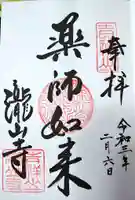 奉拝
令和三年
二月六日
薬師如来
瀧山寺